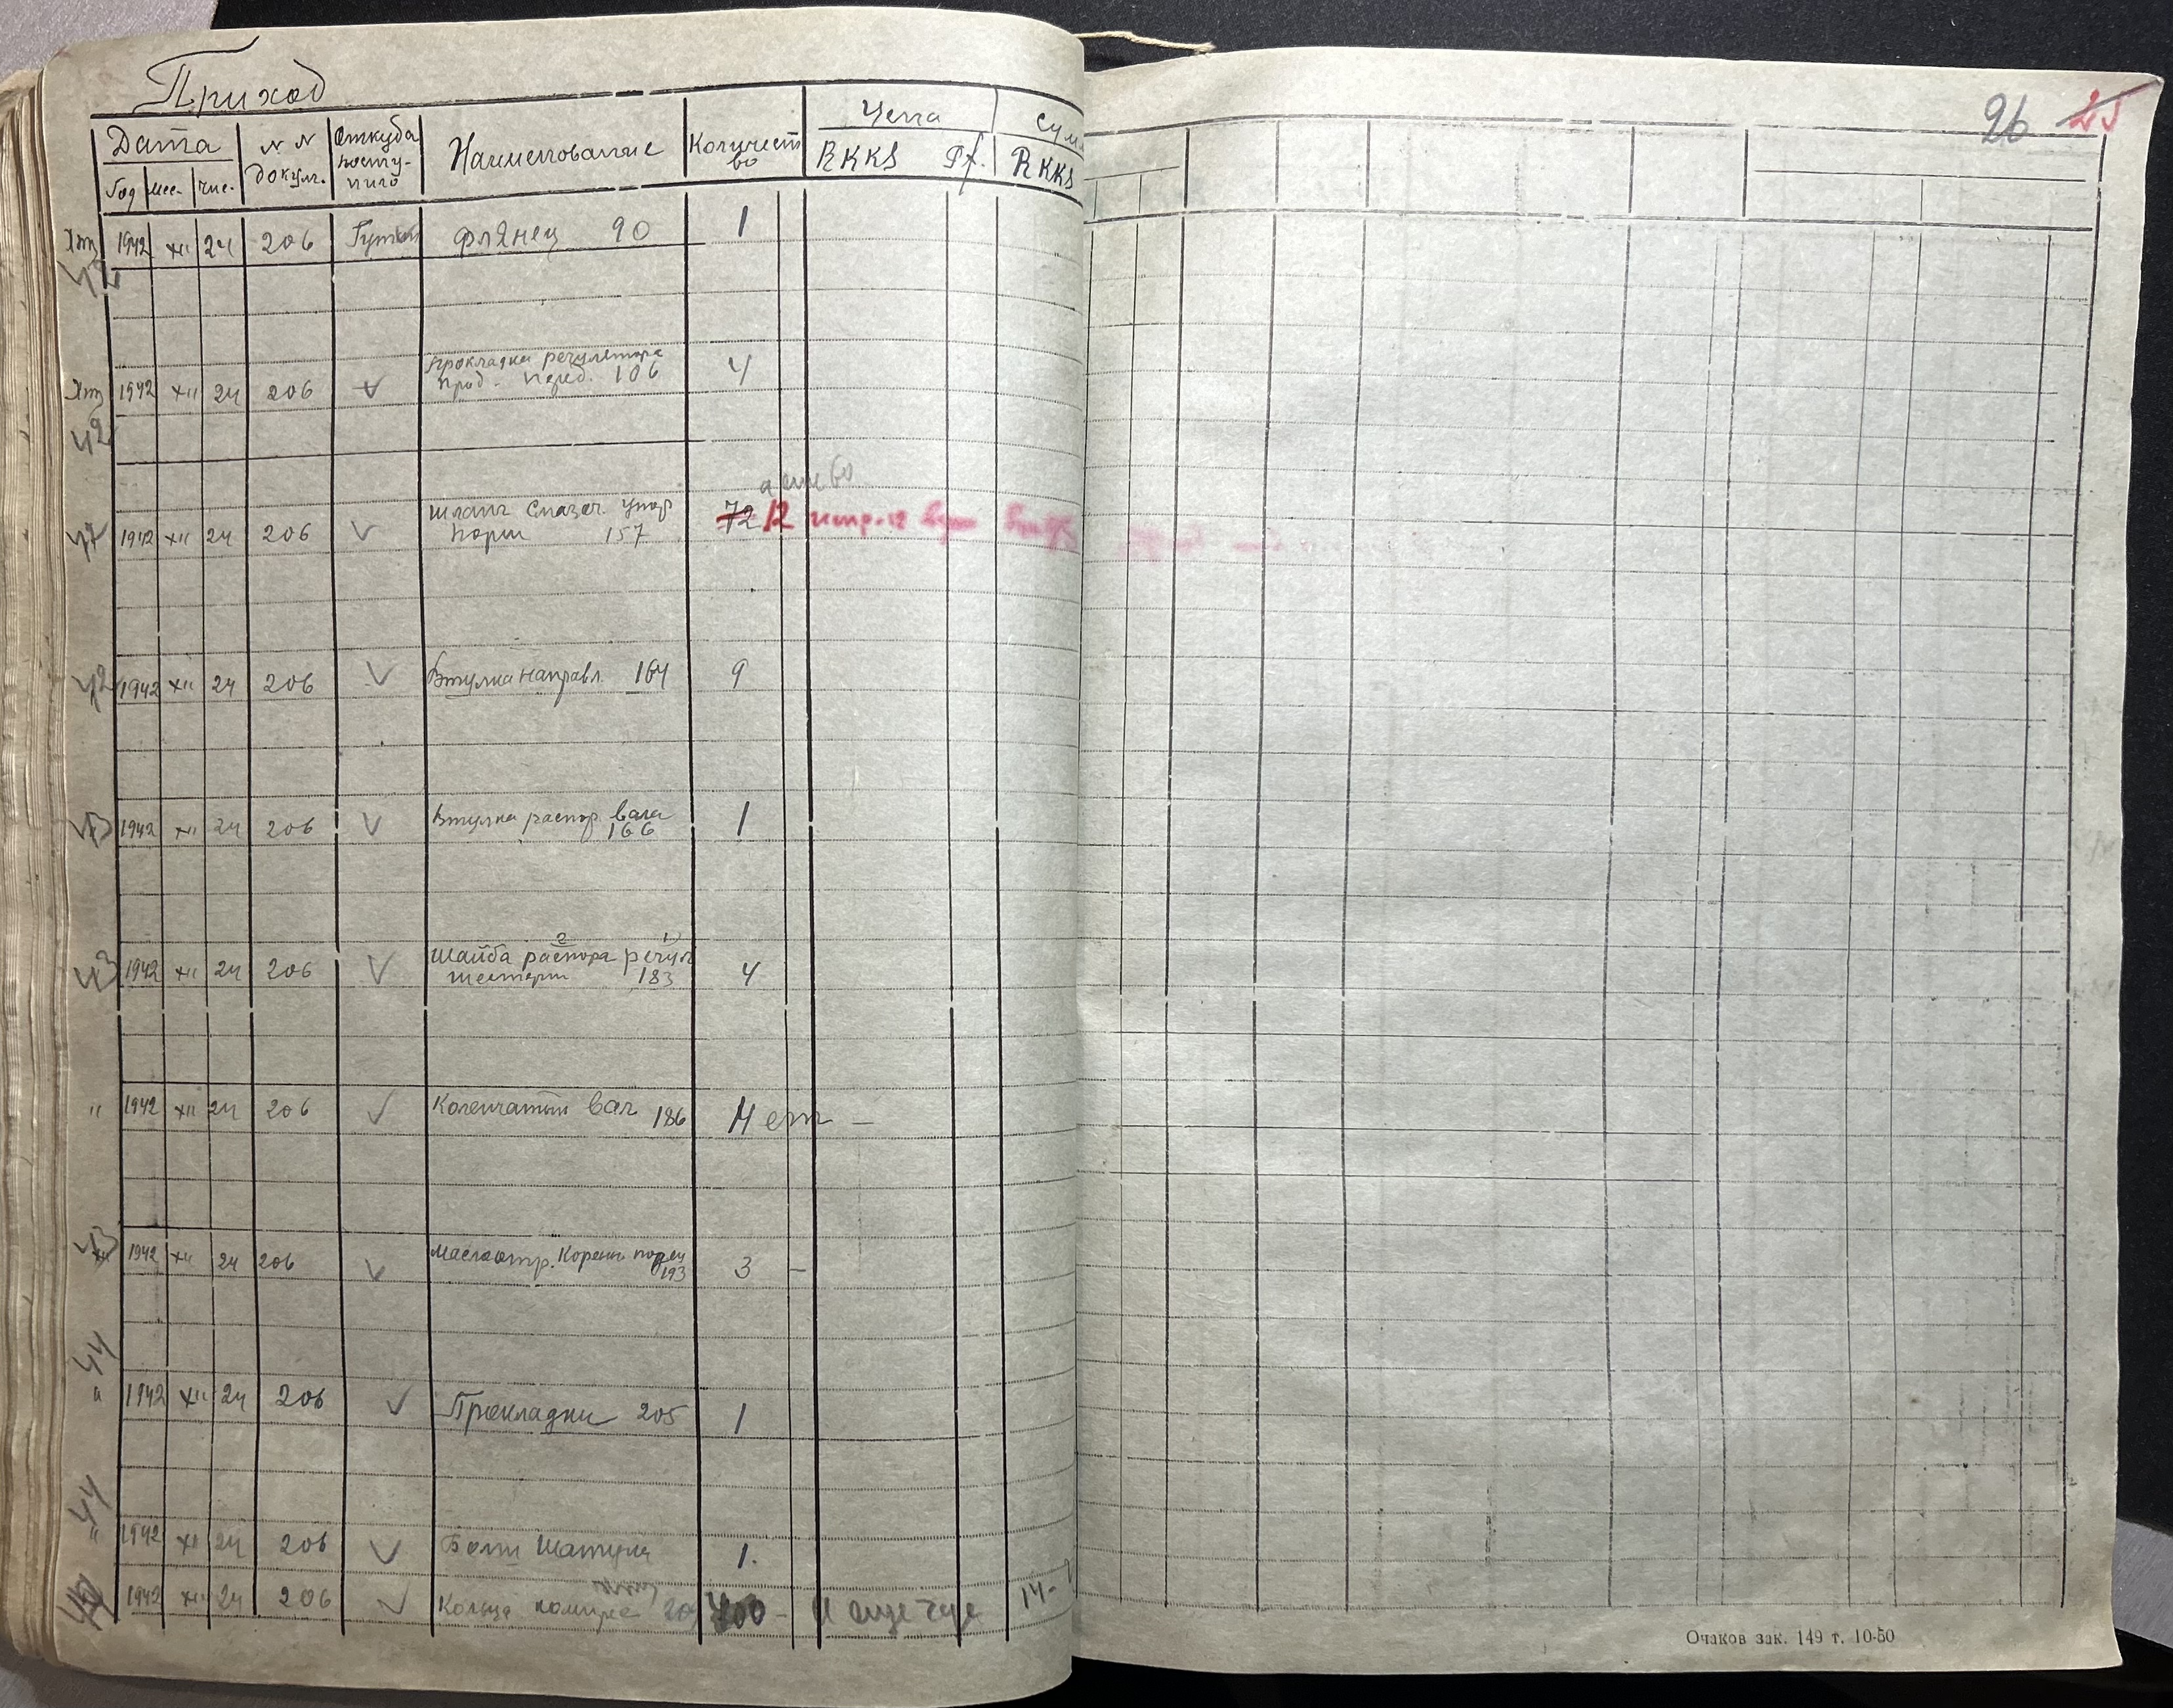 Приход
26 25
Дата № № докум. Откуда поступило Наименование Количество Цена Сум
Год Мес. Чис. RKKS Pf. RKKS
Хтз 1942 XII 24 206 Фланец 90 1
42
Прокладка регулятора
Хтз 1942 XII 24 206 V прод. перед. 106 4
42
Шланг Смазоч. упор
1942 XII 24 206 V 157 72 12
42 1942 XII 24 206 V Втулка направл. 164 9
43 1942 XII 24 206 V Втулка распор. вала
166 1
2 1)
43 1942 XII 24 206 V Шайба распора регул
шестерни 183 4
" 1942 XII 24 206 V Коленчатый вал 186 Нет —
43 1942 XII 24 206 V Маслоотр. Коренн 193 3 –
44
" 1942 XII 24 206 V Прокладки 205 1
44
" 1942 XII 24 206 V Болт Шатуна 1.
1942 XII 24 206 V Кольца - И еще где 14-
Очаков зак. 149 т. 10-50